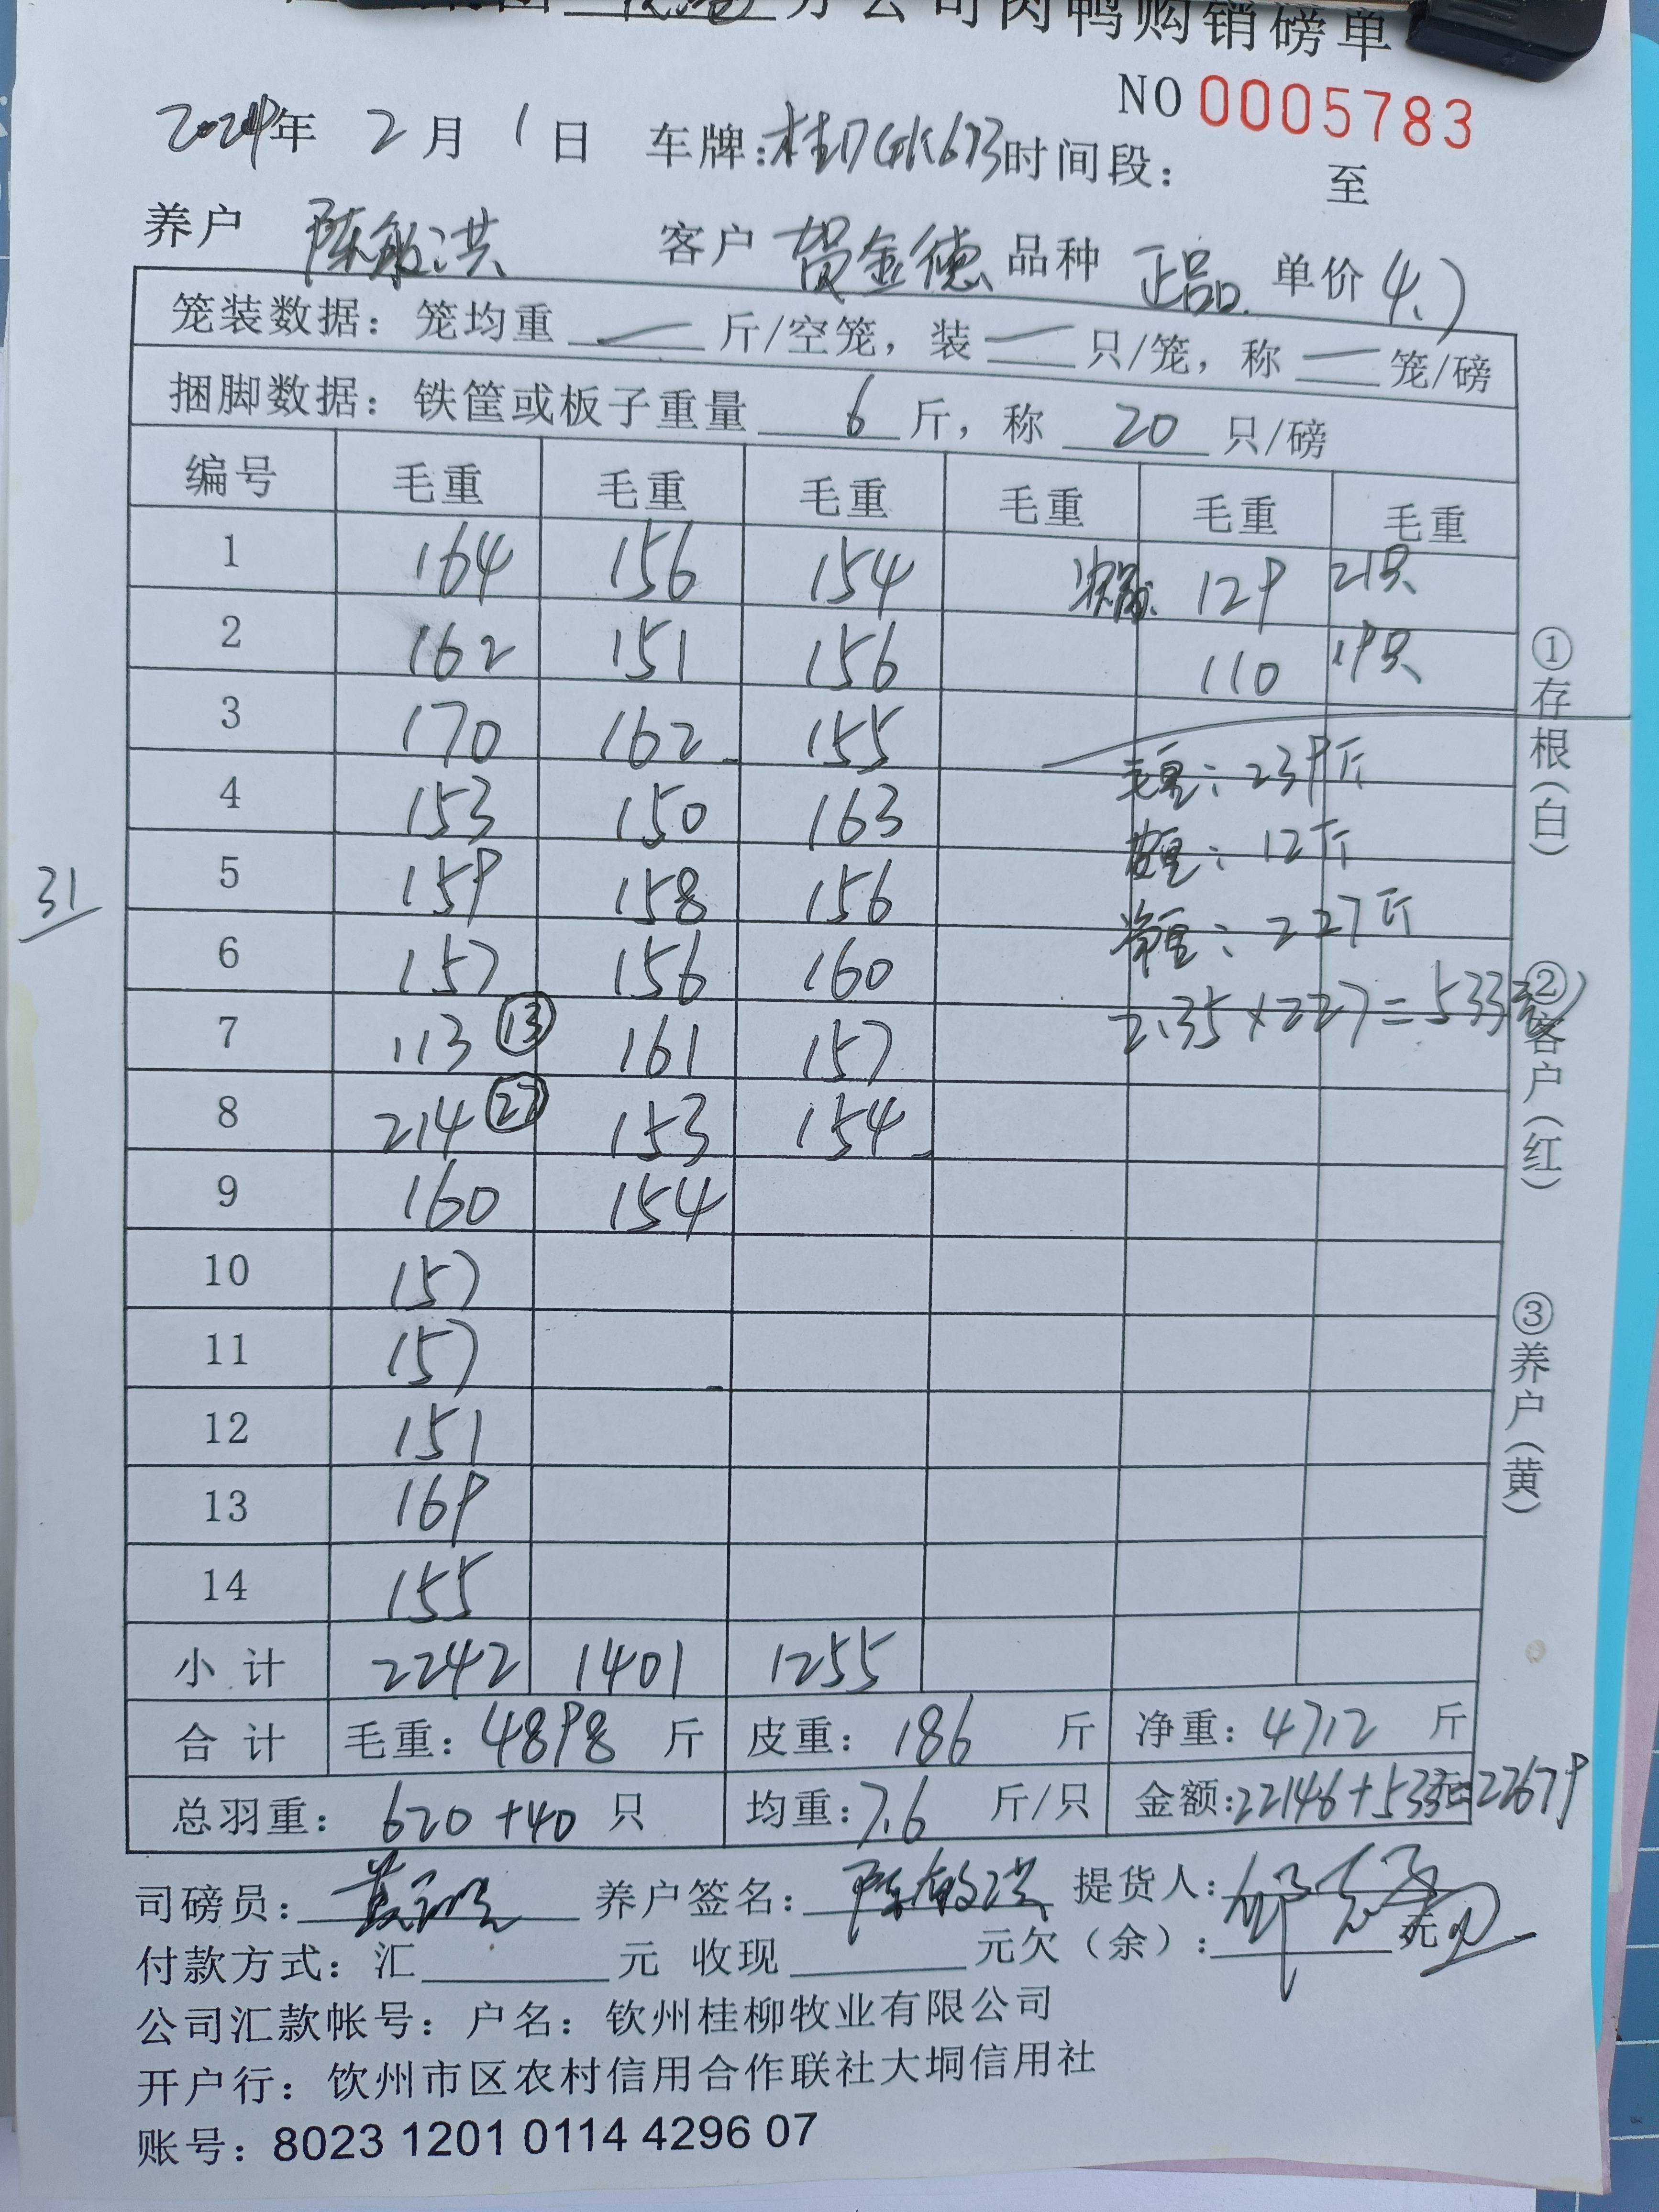 分公司肉鸭购销磅单
NO 0005783
2024年 2月 1日 车牌:桂D 673 时间段: 至
养户 陈敏洪 客户 贺金德 品种 正品 单价 4.7
笼装数据：笼均重 — 斤/空笼，装 — 只/笼，称 — 笼/磅
捆脚数据：铁筐或板子重量 6 斤，称 20 只/磅
编号 毛重 毛重 毛重 毛重 毛重 毛重
1 164 156 154 次品: 129 21只
2 162 151 156 110 19只
3 170 162 155
4 153 150 163 毛重: 239斤
31 5 159 158 156 皮重: 12斤
6 157 156 160 净重: 227斤
7 113 ⑬ 161 157 2.35×227=533元
8 214 ㉗ 153 154
9 160 154
10 157
11 157
12 151
13 169
14 155
小计 2242 1401 1255
合计 毛重: 4898 斤 皮重: 186 斤 净重: 4712 斤
总羽重: 620+40 只 均重: 7.6 斤/只 金额: 22146+533元=22679
司磅员: 养户签名: 陈敏洪 提货人:
付款方式: 汇 元 收现 元欠（余）: 元
公司汇款帐号: 户名: 钦州桂柳牧业有限公司
开户行: 钦州市区农村信用合作联社大垌信用社
账号: 8023 1201 0114 4296 07
①存根(白)
②客户(红)
③养户(黄)